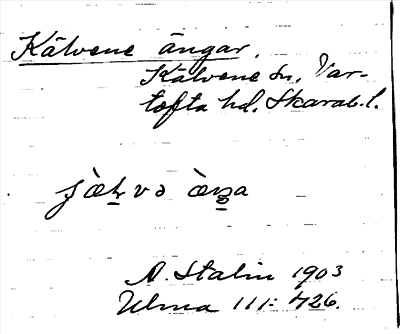 Kälvene ängar.
Kälvene sn, Var-
tofta hd. Skarab. l.
A. Stalin 1903
Ulma 111: 426.